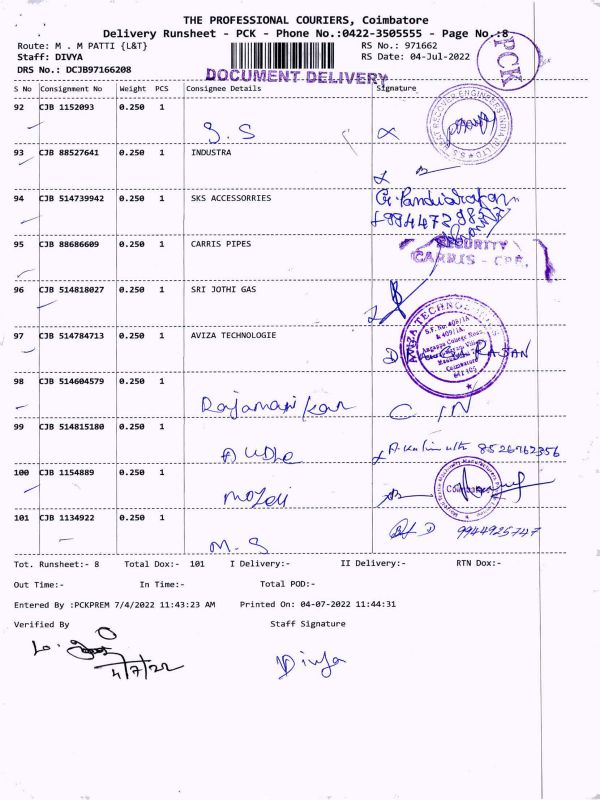 THE PROFESSIONAL COURIERS, Coimbatore
Delivery Runsheet - PCK - Phone No.:0422-3505555 - Page No.:8
Route: M . M PATTI {L&T} RS No.: 971662
Staff: DIVYA RS Date: 04-Jul-2022
DRS No.: DCJB97166208
PCK
DOCUMENT DELIVERY
S No Consignment No Weight PCS Consignee Details Signature
92 CJB 1152093 0.250 1 S.S
93 CJB 88527641 0.250 1 INDUSTRA
94 CJB 514739942 0.250 1 SKS ACCESSORRIES
95 CJB 88686609 0.250 1 CARRIS PIPES
SECURITY
CARRIS - CPP.
96 CJB 514818027 0.250 1 SRI JOTHI GAS
97 CJB 514784713 0.250 1 AVIZA TECHNOLOGIE
AVIZA TECHNO
S.F. No. 409/1A
& 409/1A
Coimbatore
641 105
98 CJB 514604579 0.250 1 Rajamanikar
99 CJB 514815180 0.250 1 8526762356
100 CJB 1154889 0.250 1
101 CJB 1134922 0.250 1 M.S 9944925747
Tot. Runsheet:- 8 Total Dox:- 101 I Delivery:- II Delivery:- RTN Dox:-
Out Time:- In Time:- Total POD:-
Entered By :PCKPREM 7/4/2022 11:43:23 AM Printed On: 04-07-2022 11:44:31
Verified By Staff Signature
4/7/22 Divya